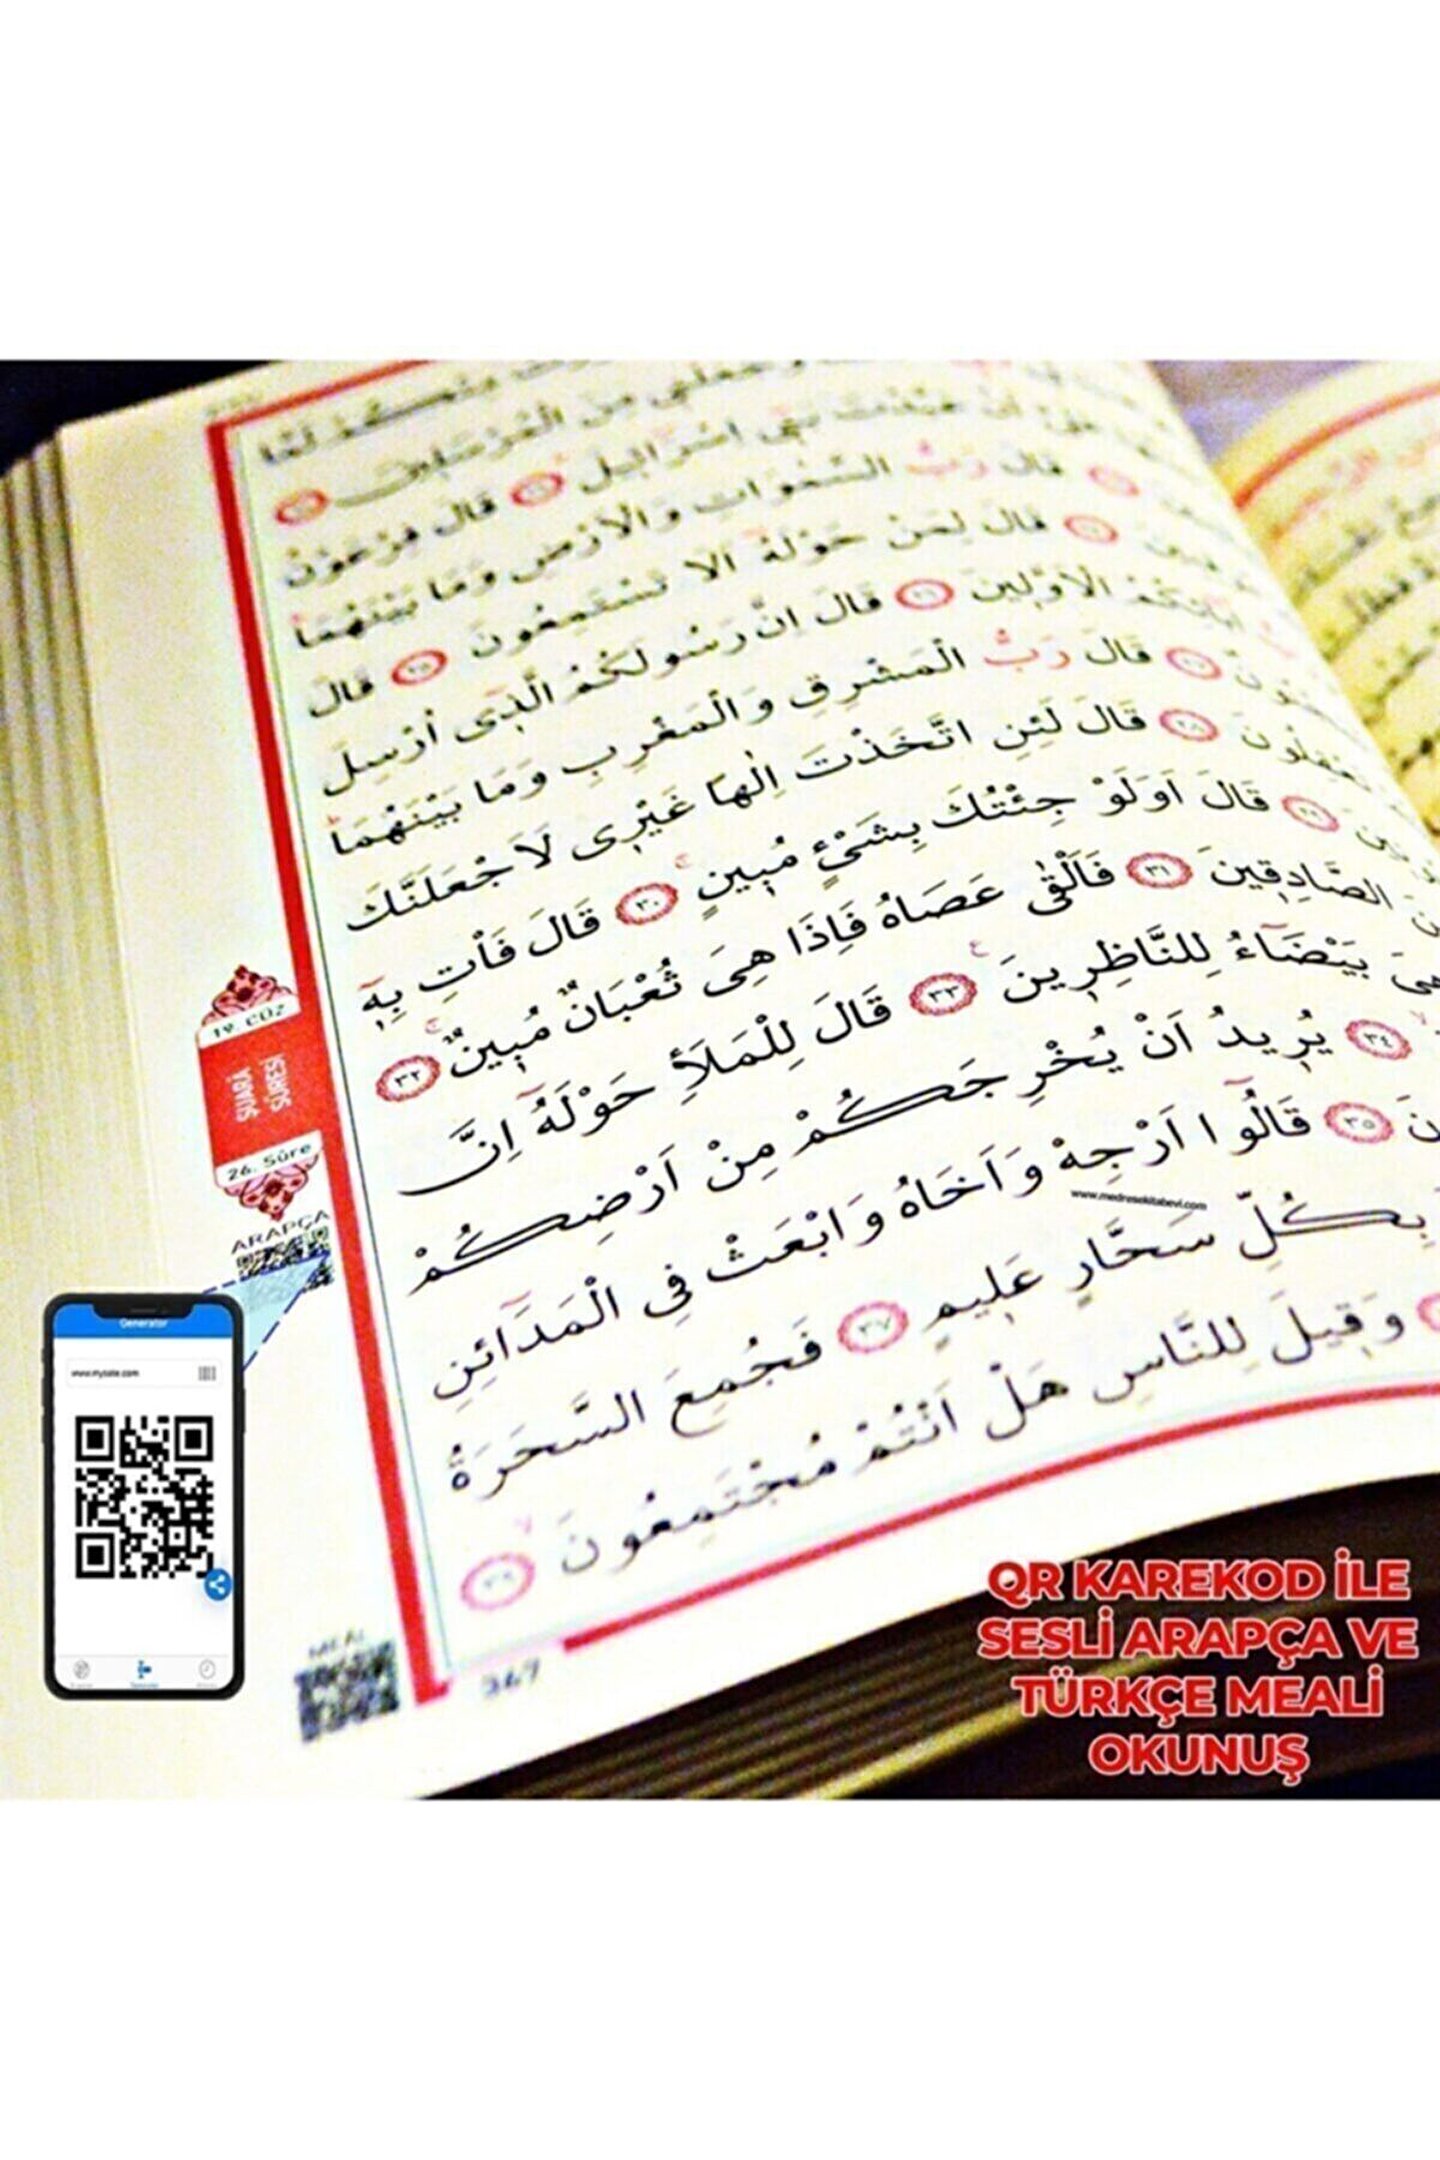 عَلَىَّ اَنْ عَبَّدْتَ بَنٖى اِسْرَائٖيلَ ﴿٢٢﴾ قَالَ فِرْعَوْنُ
قَالَ رَبُّ السَّمٰوَاتِ وَالْاَرْضِ وَمَا بَيْنَهُمَا
قَالَ لِمَنْ حَوْلَهُ اَلَا تَسْتَمِعُونَ ﴿٢٥﴾ قَالَ
اٰبَائِكُمُ الْاَوَّلٖينَ ﴿٢٦﴾ قَالَ اِنَّ رَسُولَكُمُ الَّذٖى اُرْسِلَ
﴿٢٧﴾ قَالَ رَبُّ الْمَشْرِقِ وَالْمَغْرِبِ وَمَا بَيْنَهُمَا
تَعْقِلُونَ ﴿٢٨﴾ قَالَ لَئِنِ اتَّخَذْتَ اِلٰهًا غَيْرٖى لَاَجْعَلَنَّكَ
﴿٢٩﴾ قَالَ اَوَلَوْ جِئْتُكَ بِشَيْءٍ مُبٖينٍ ﴿٣٠﴾ قَالَ فَأْتِ بِهٖ
الصَّادِقٖينَ ﴿٣١﴾ فَاَلْقٰى عَصَاهُ فَاِذَا هِىَ ثُعْبَانٌ مُبٖينٌ ﴿٣٢﴾
هِىَ بَيْضَاءُ لِلنَّاظِرٖينَ ﴿٣٣﴾ قَالَ لِلْمَلَأِ حَوْلَهُ اِنَّ
﴿٣٤﴾ يُرٖيدُ اَنْ يُخْرِجَكُمْ مِنْ اَرْضِكُمْ
﴿٣٥﴾ قَالُوا اَرْجِهْ وَاَخَاهُ وَابْعَثْ فِى الْمَدَائِنِ
بِكُلِّ سَحَّارٍ عَلٖيمٍ ﴿٣٧﴾ فَجُمِعَ السَّحَرَةُ
وَقٖيلَ لِلنَّاسِ هَلْ اَنْتُمْ مُجْتَمِعُونَ ﴿٣٩﴾
367
19. CÜZ
ŞUARA
SÛRESİ
26. Sûre
ARAPÇA
MEAL
www.medresekitabevi.com
Generator
www.mysite.com
QR KAREKOD İLE
SESLİ ARAPÇA VE
TÜRKÇE MEALİ
OKUNUŞ